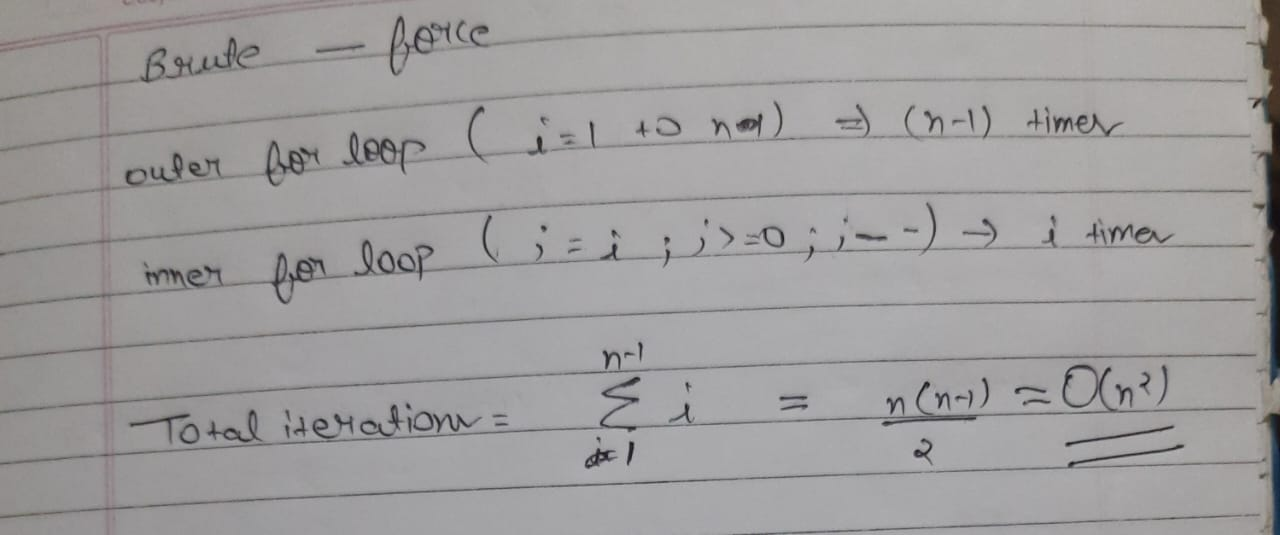 Brute - force
outer for loop ( i=1 to n-1) => (n-1) times
inner for loop ( j = i ; j>=0 ; j--) → i times
n-1
Total iterations = Σ i = n(n-1) = O(n²)
i=1 2